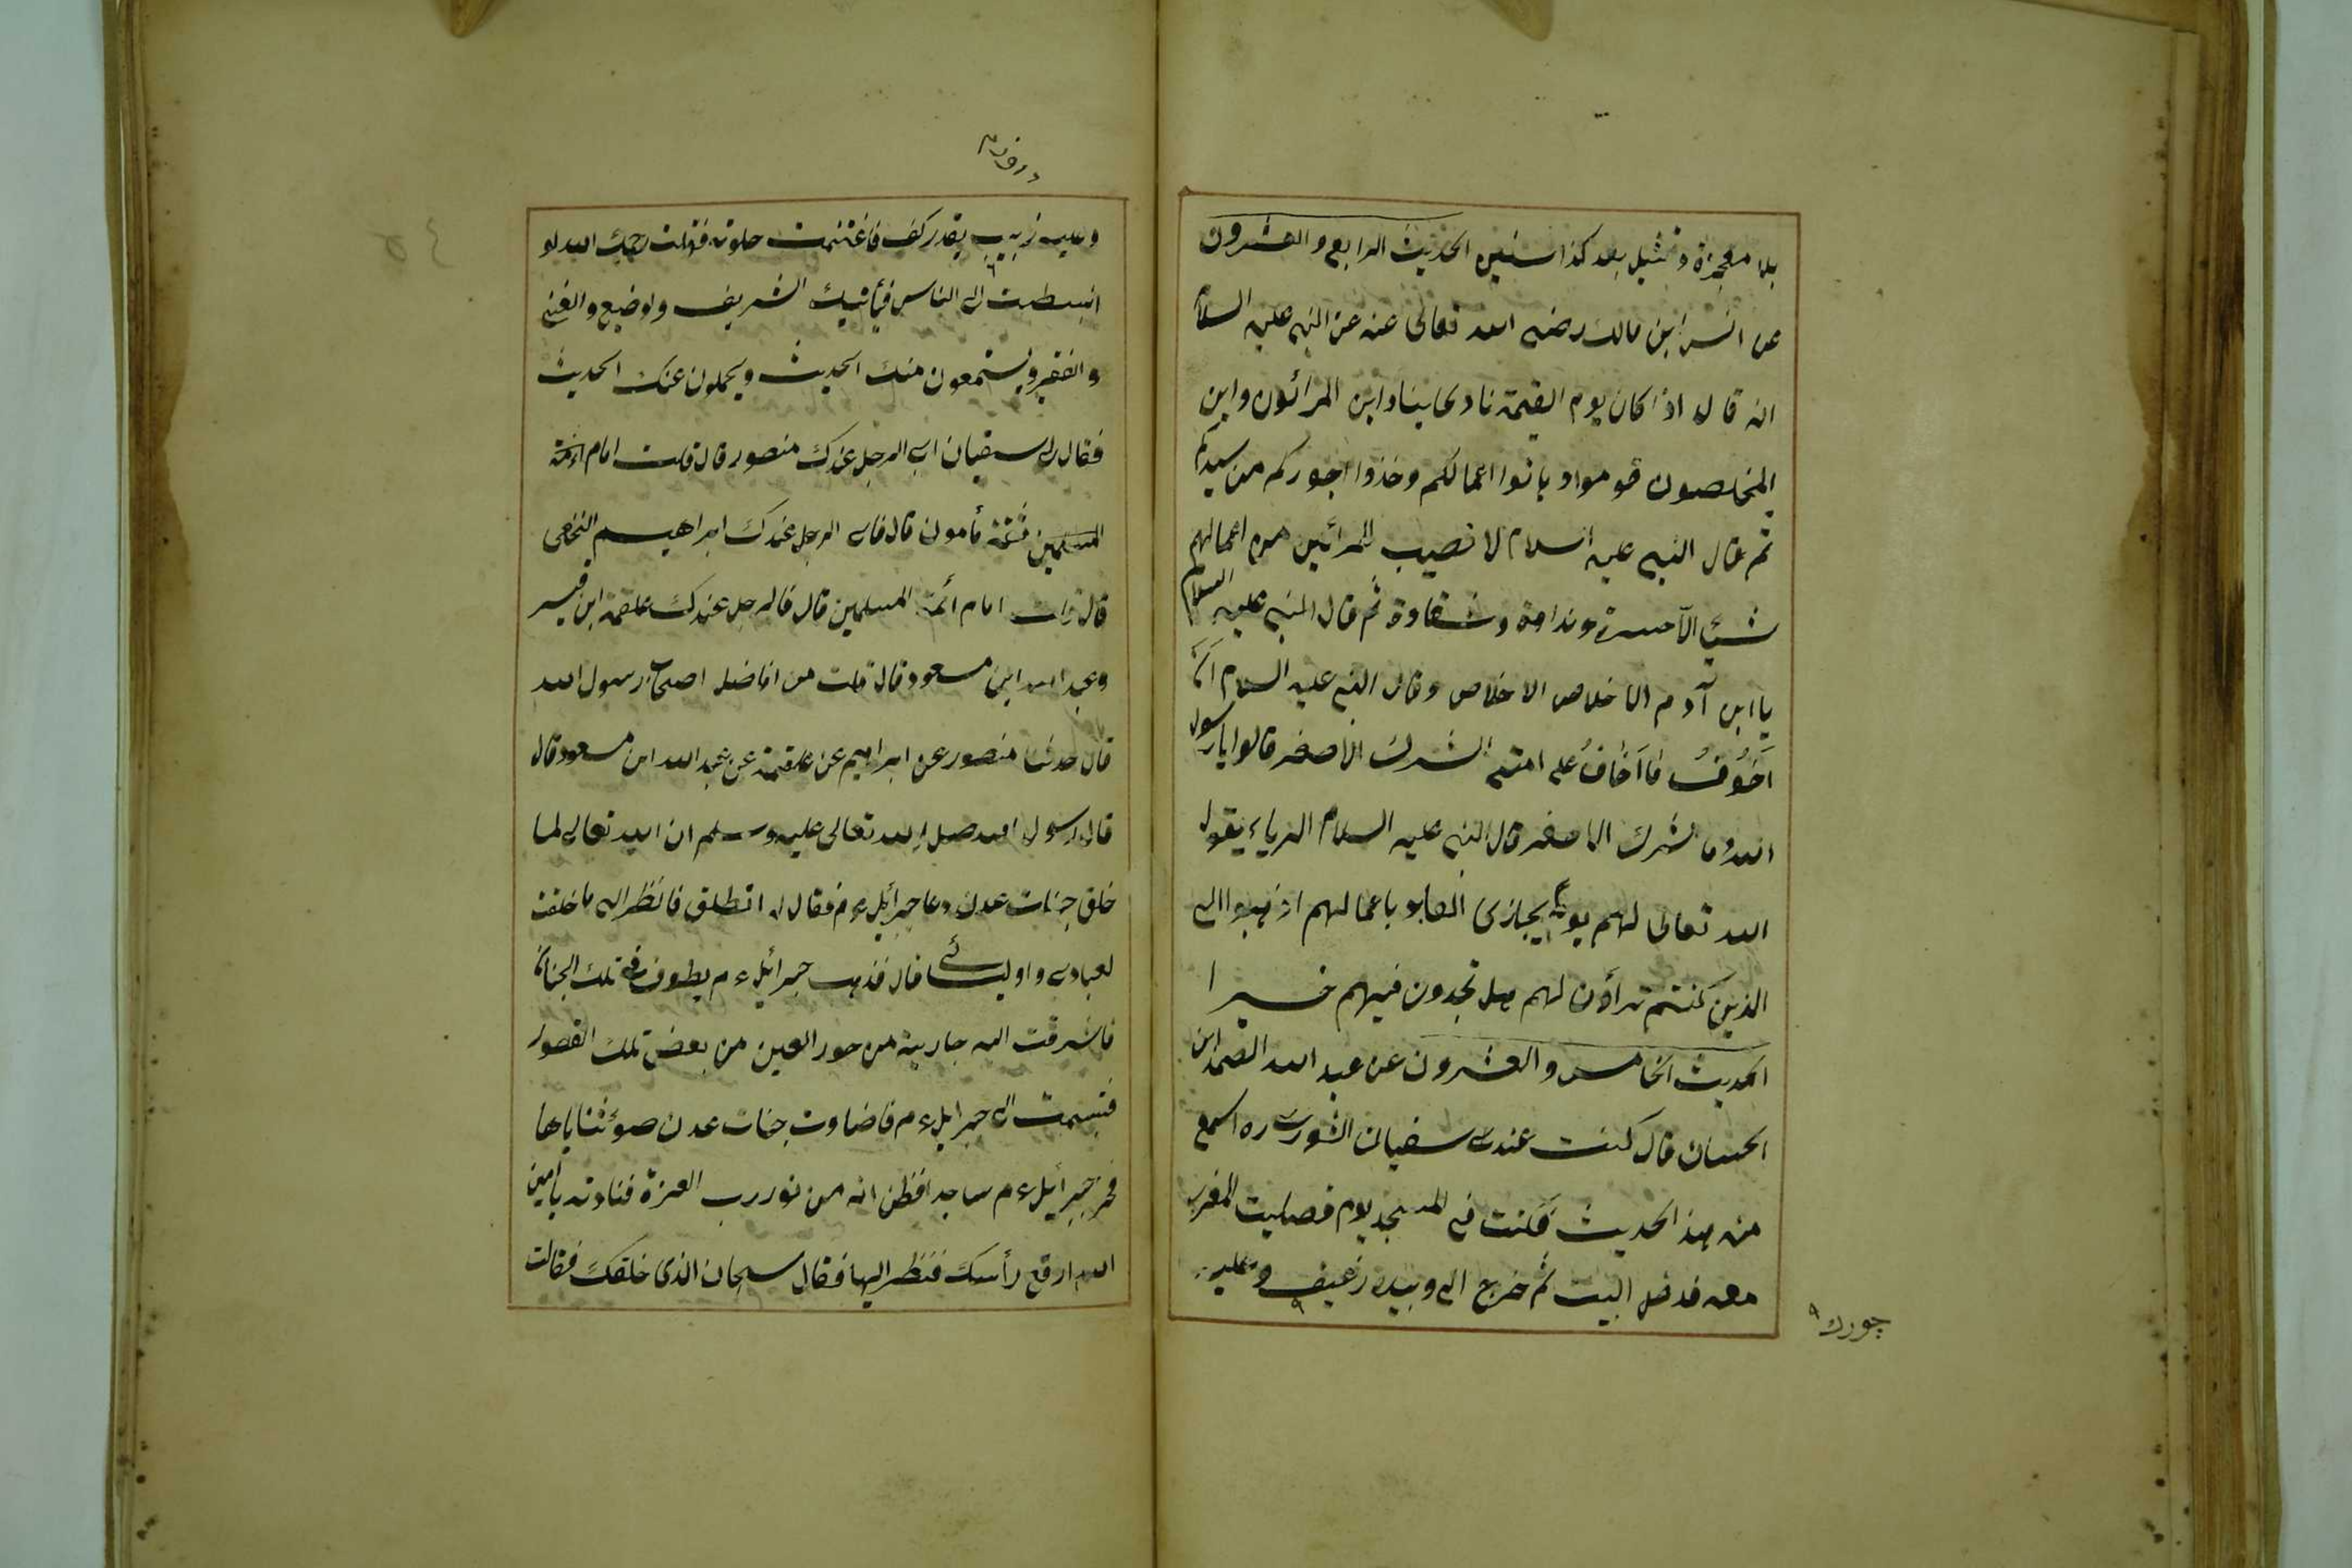 بلا معجزة وتمثيل بعد كذا سنين الحديث الرابع والعشرون
عن انس ابن مالك رضى الله تعالى عنه عن النبى عليه السلام
انه قال اذا كان يوم القيمة نادى مناد اين المرائون واين
المخلصون قوموا وهاتوا اعمالكم وخذوا اجوركم من سيدكم
ثم قال النبى عليه السلام لا نصيب للمرائين من اعمالهم
شئ الا حسرة وندامة وشقاوة ثم قال النبى عليه السلام
يا ابن آدم الاخلاص الاخلاص وقال النبى عليه السلام ان
اخوف ما اخاف على امتى الشرك الاصغر قالوا يا رسول
الله وما الشرك الاصغر قال النبى عليه السلام الرياء يقول
الله تعالى لهم يوم يجازى العباد باعمالهم اذهبوا الى
الذين كنتم تراؤن لهم هل تجدون فيهم خيرا
الحديث الخامس والعشرون عن عبد الله الصمد ابن
الحسان قال كنت عند سفيان الثورى ره اسمع
منه هذا الحديث فكنت فى المسجد يوم فصليت المغرب
معه فدخل البيت ثم خرج الى وبيده رغيف وعليه
چورك
وعليه زبيب بقدر كف فاغتنمت خلوته فقلت رحمك الله لو
انبسطت الى الناس فيأتيك الشريف ولوضيع والغنى
والفقير ويستمعون منك الحديث ويحملون عنك الحديث
فقال لى سفيان اى الرجل عندك منصور قال قلت امام ائمة
المسلمين ثقة مأمون قال فاى الرجل عندك ابراهيم النخعى
قال قلت امام ائمة المسلمين قال فالرجل عندك علقمة ابن قيس
وعبد الله ابن مسعود قال قلت من افاضل اصحاب رسول الله
قال حدثنا منصور عن ابراهيم عن علقمة عن عبد الله ابن مسعود قال
قال رسول الله صلى الله تعالى عليه وسلم ان الله تعالى لما
خلق جنات عدن دعا جبرائيل ءم فقال له انطلق فانظر الى ما خلقت
لعبادى واوليائى قال فذهب جبرائيل ءم يطوف فى تلك الجنان
فاشرقت اليه جارية من حور العين من بعض تلك القصور
فتبسمت الى جبرايل ءم فاضاوت جنات عدن ضوء ثناياها
فخر جبرائيل ءم ساجدا فظن انه من نور رب العزة فنادته يا امين
الله ارفع رأسك فنظر اليها فقال سبحان الذى خلقك فقالت